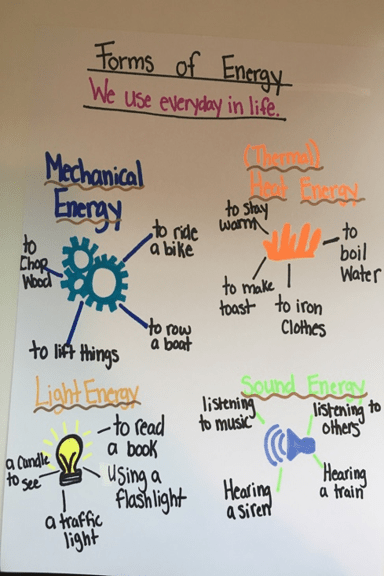 Forms of Energy
We use everyday in life.
Mechanical
Energy
to
Chop
Wood
to ride
a bike
to row
a boat
to lift things
(Thermal)
Heat Energy
to stay
warm
to
boil
Water
to make
toast
to iron
Clothes
Light Energy
to read
a book
a Candle
to see
Using a
flashlight
a traffic
light
Sound Energy
listening
to music
listening to
others
Hearing
a siren
Hearing
a train